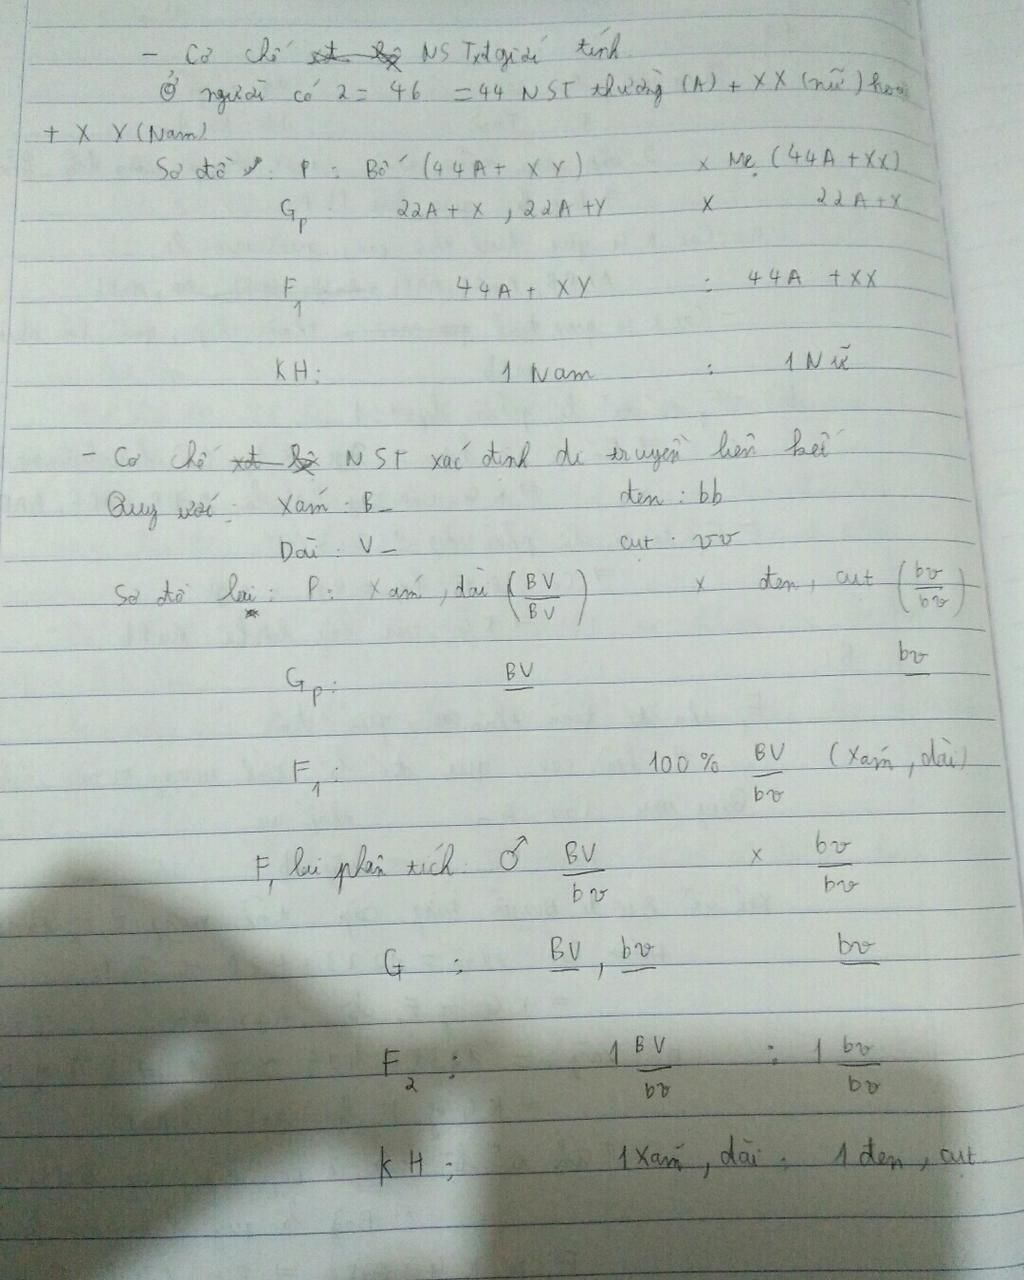 - Cơ chế NST xđ giới tính
Ở người có 2 = 46 = 44 NST thường (A) + XX (nữ) hoặc
+ X Y (Nam)
Sơ đồ : P : Bố (44A + XY) x Mẹ (44A + XX)
Gp 22A + X , 22A + Y x 22A + X
F1 44A + XY : 44A + XX
KH : 1 Nam : 1 Nữ
- Cơ chế NST xác định di truyền liên kết
Quy ước : Xám : B_ đen : bb
Dài : V_ cụt : vv
Sơ đồ lai : P : Xám , dài (BV/BV) x đen , cụt (bv/bv)
Gp : BV bv
F1 : 100 % BV/bv (Xám , dài)
F1 lai phân tích : ♂ BV/bv x bv/bv
G : BV , bv bv
F2 : 1 BV/bv : 1 bv/bv
KH : 1 Xám , dài : 1 đen , cụt